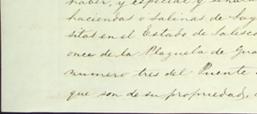 haber, y especial y señal
haciendas o salinas de Say
sitas en el Estado de Jalisco
once de la Plazuela de Gua
numero tres del Puente
que son de su propriedad,